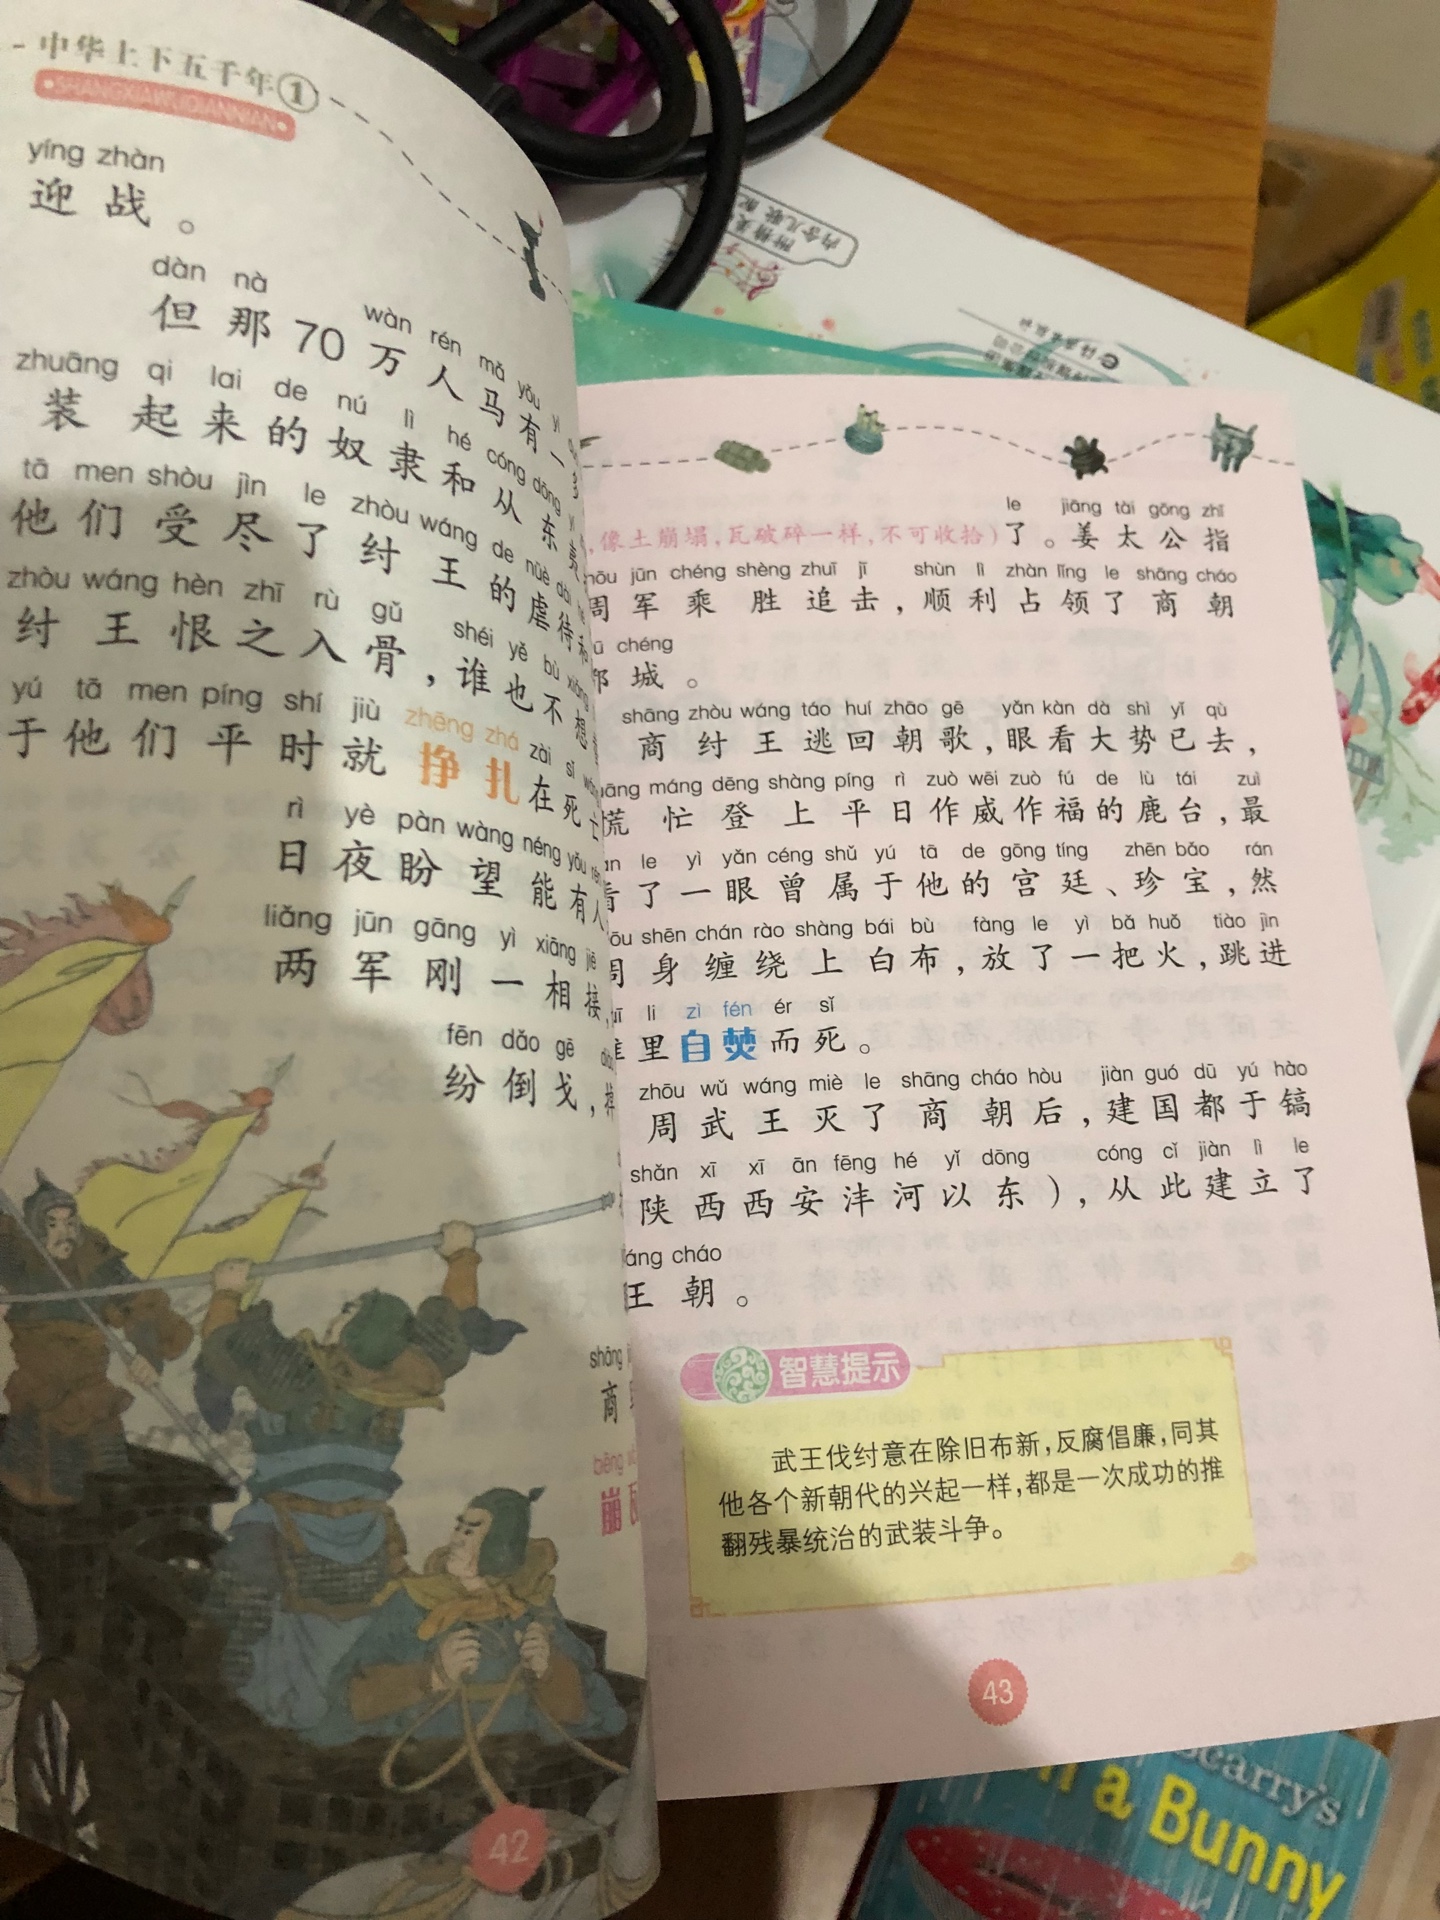 中华上下五千年①
SHANGXIAWUQIANNIAN
yíng zhàn
迎战。
dàn nà wàn rén mǎ yǒu yí
但那70万人马有一
zhuāng qi lai de nú lì hé cóng dōng
装起来的奴隶和从东
tā men shòu jìn le zhòu wáng de nüè dài hé
他们受尽了纣王的虐待和
zhòu wáng hèn zhī rù gǔ shéi yě bù xiǎng
纣王恨之入骨,谁也不想
yú tā men píng shí jiù zhēng zhá zài sǐ wáng
于他们平时就挣扎在死亡
rì yè pàn wàng néng yǒu rén
日夜盼望能有人
liǎng jūn gāng yì xiāng jiē
两军刚一相接,
fēn dǎo gē
纷倒戈,
shāng
商
bēng
崩瓦
42
le jiāng tài gōng zhǐ
,像土崩塌,瓦破碎一样,不可收拾)了。姜太公指
zhōu jūn chéng shèng zhuī jī shùn lì zhàn lǐng le shāng cháo
周军乘胜追击,顺利占领了商朝
chéng
城。
shāng zhòu wáng táo huí zhāo gē yǎn kàn dà shì yǐ qù
商纣王逃回朝歌,眼看大势已去,
máng dēng shàng píng rì zuò wēi zuò fú de lù tái zuì
慌忙登上平日作威作福的鹿台,最
le yì yǎn céng shǔ yú tā de gōng tíng zhēn bǎo rán
看了一眼曾属于他的宫廷、珍宝,然
shēn chán rào shàng bái bù fàng le yì bǎ huǒ tiào jìn
周身缠绕上白布,放了一把火,跳进
li zì fén ér sǐ
里自焚而死。
zhōu wǔ wáng miè le shāng cháo hòu jiàn guó dū yú hào
周武王灭了商朝后,建国都于镐
shǎn xī xī ān fēng hé yǐ dōng cóng cǐ jiàn lì le
陕西西安沣河以东),从此建立了
cháo
王朝。
智慧提示
武王伐纣意在除旧布新,反腐倡廉,同其
他各个新朝代的兴起一样,都是一次成功的推
翻残暴统治的武装斗争。
43
Scarry's
a Bunny